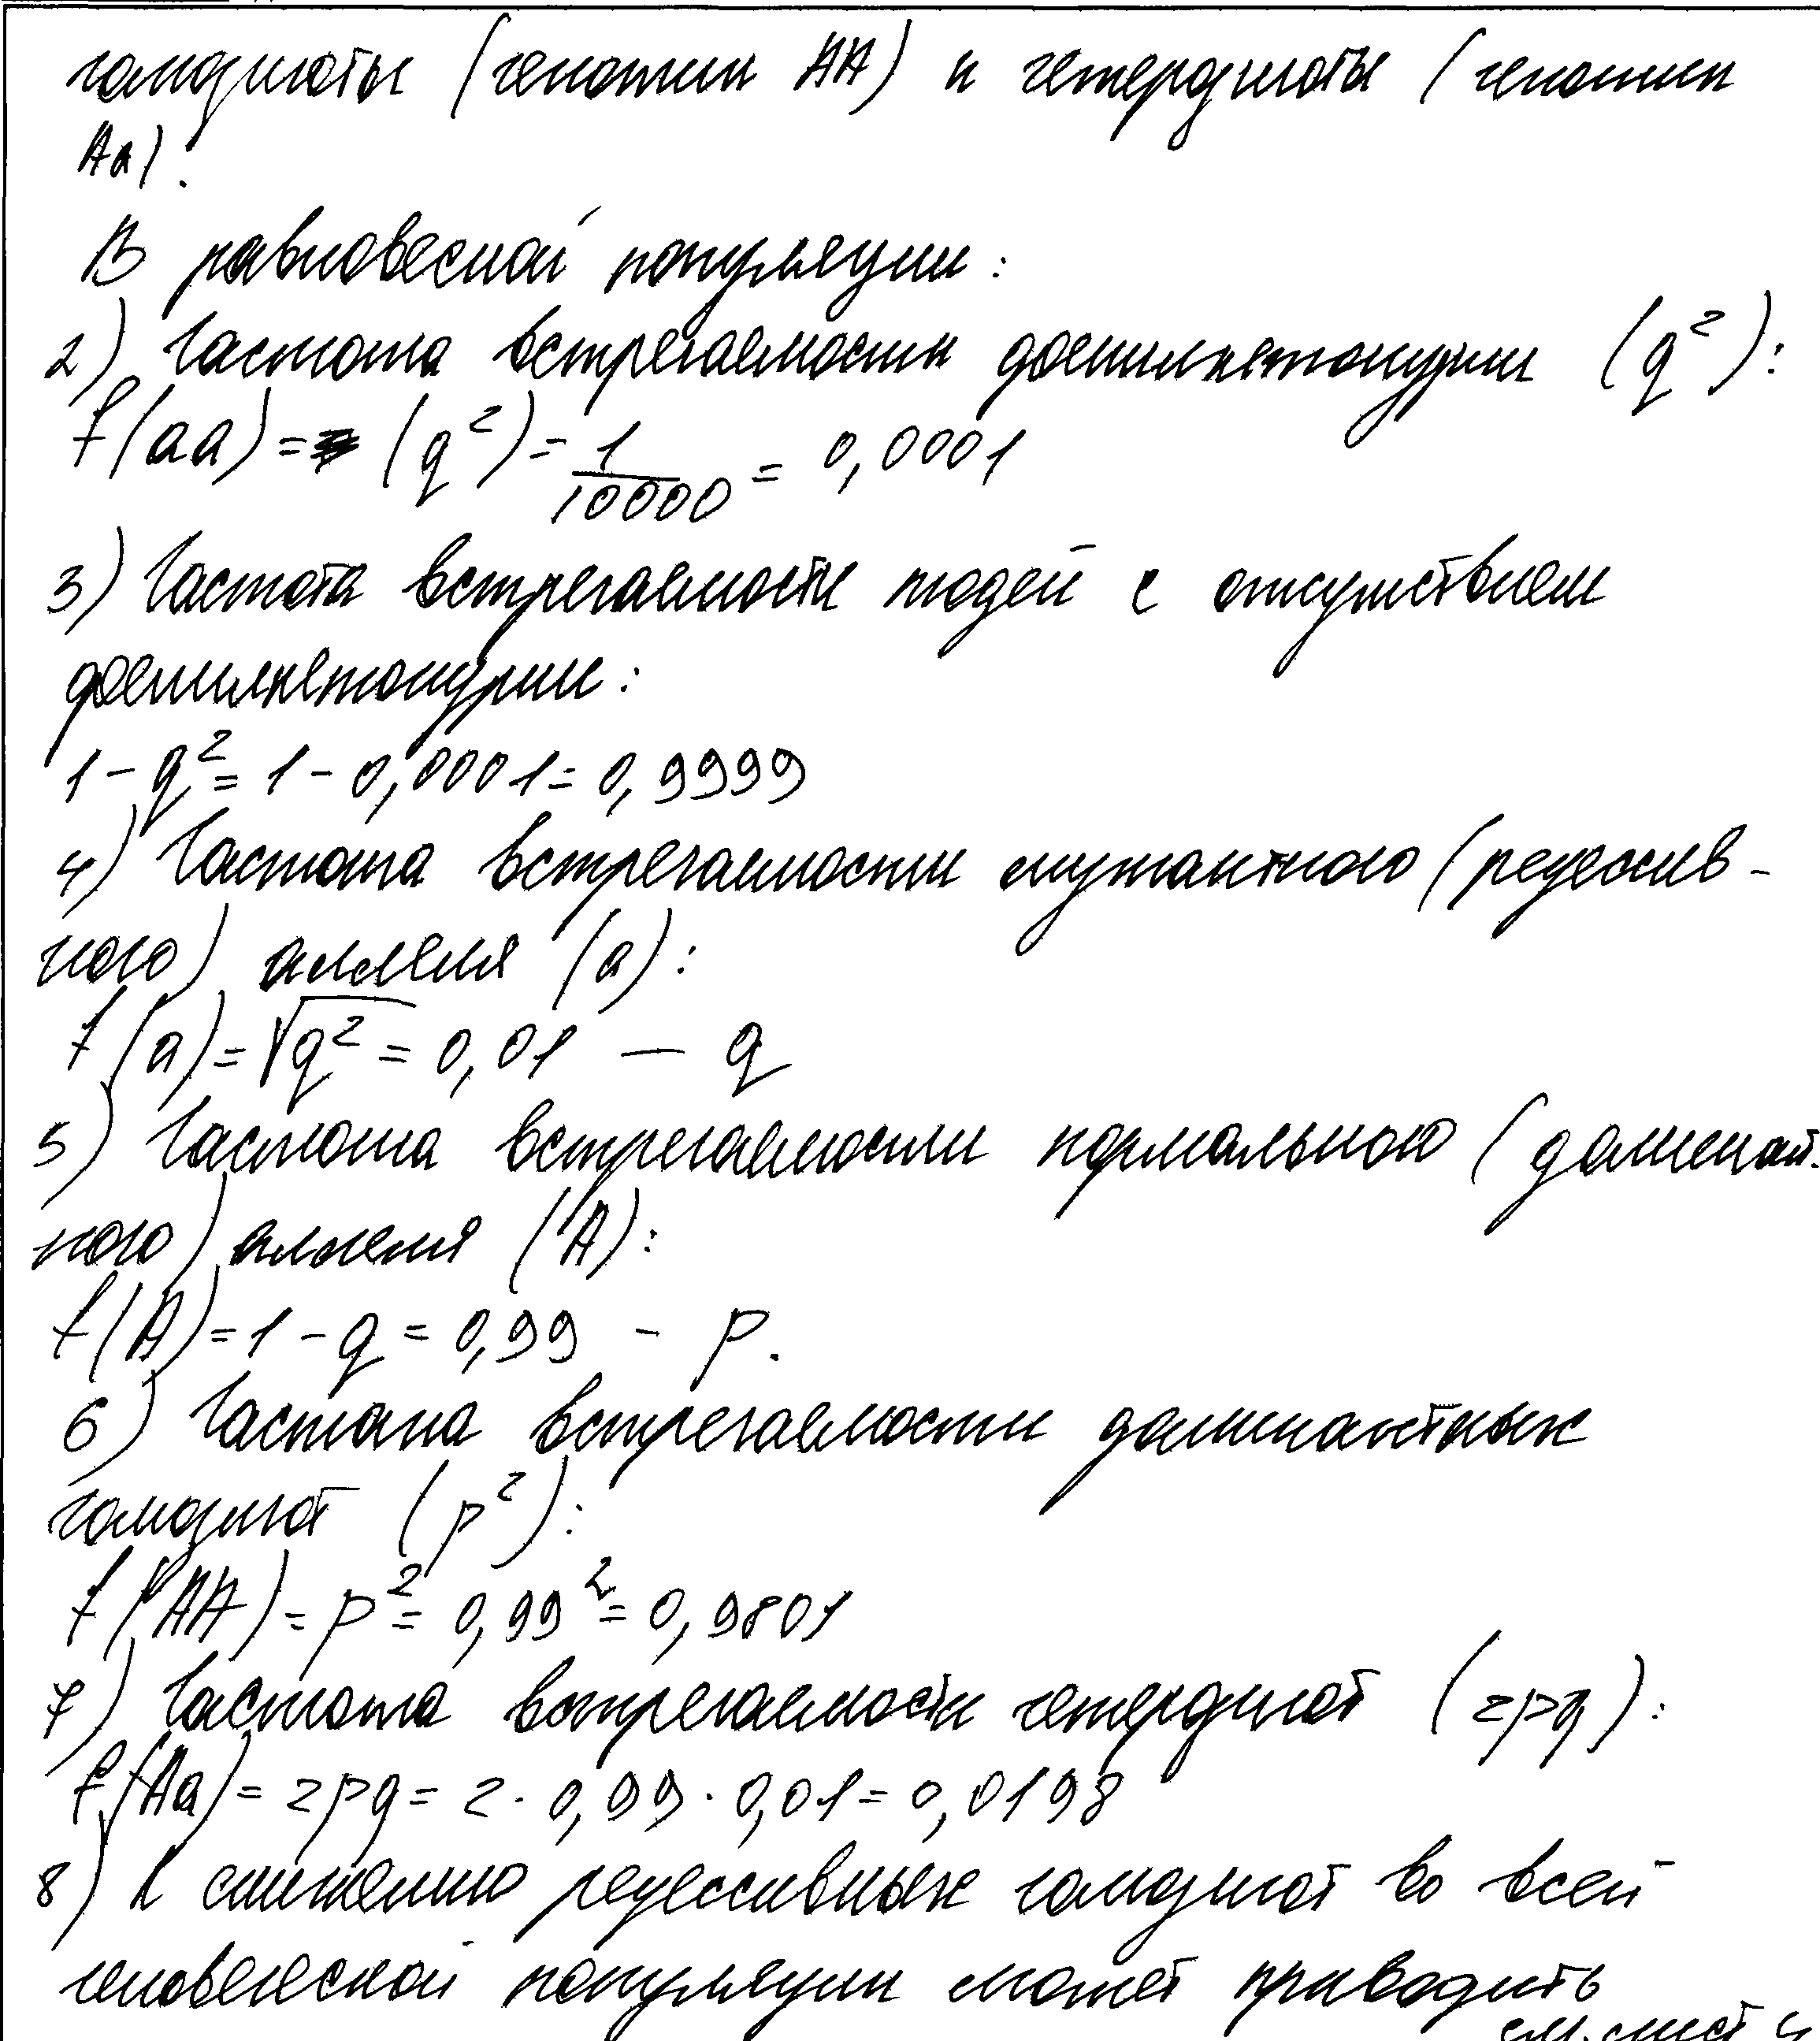 гомозиготы (генотип АА) и гетерозиготы (генотип
Аа).
В равновесной популяции:
2) Частота встречаемости фенилкетонурии (q²):
f(aa) = (q²) = 1/10000 = 0,0001
3) Частота встречаемости людей с отсутствием
фенилкетонурии:
1 - q² = 1 - 0,0001 = 0,9999
4) Частота встречаемости мутантного (рецессив-
ного) аллеля (а):
f(a) = √q² = 0,01 — q
5) Частота встречаемости нормального (доминант-
ного) аллеля (А):
f(A) = 1 - q = 0,99 - p.
6) Частота встречаемости доминантных
гомозигот (p²):
f(AA) = p² = 0,99² = 0,9801
7) Частота встречаемости гетерозигот (2pq):
f(Aa) = 2pq = 2 · 0,99 · 0,01 = 0,0198
8) К снижению рецессивных гомозигот во всей
человеческой популяции может приводить
см. лист